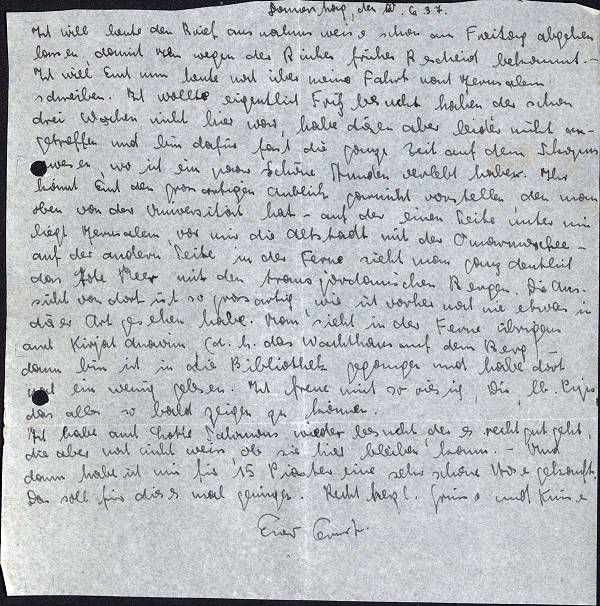 Donnerstag, den 10. 6. 37.
Ich will heute den Brief ausnahmsweise schon am Freitag abgehen
lassen, damit Ihr wegen der Bücher früher Bescheid bekommt. -
Ich will Euch nun heute noch über meine Fahrt nach Jerusalem
schreiben. Ich wollte eigentlich Fritz besucht haben der schon
drei Wochen nicht hier war, habe diesen aber leider nicht an-
getroffen und bin dafür fast die ganze Zeit auf dem Skopus
gewesen, wo ich ein paar schöne Stunden verlebt habe. Ihr
könnt Euch den grossartigen Anblick garnicht vorstellen den man
oben von der Universität hat - auf der einen Seite unter mir
liegt Jerusalem vor mir die Altstadt mit der Omarmoschee -
auf der andern Seite in der Ferne sieht man ganz deutlich
das Tote Meer mit den transjordanischen Bergen. Die Aus-
sicht von dort ist so grossartig wie ich vorher noch nie etwas in
dieser Art gesehen habe. Man sieht in der Ferne übrigens
auch Kirjat Anavim (d. h. das Wachthaus auf dem Berg)
dann bin ich in die Bibliothek gegangen und habe dort
noch ein wenig gelesen. Ich freue mich so riesig, Dir, lb.
das alles so bald zeigen zu können.
Ich habe auch Lotte Salomons wieder besucht der es recht gut geht,
die aber noch nicht weiss, ob sie hier bleiben kann. - Und
dann habe ich mir für 15 Piaster eine sehr schöne Hose gekauft.
Das soll für dieses mal genügen. Recht herzl. Grüsse und Küsse
Euer Ernst.